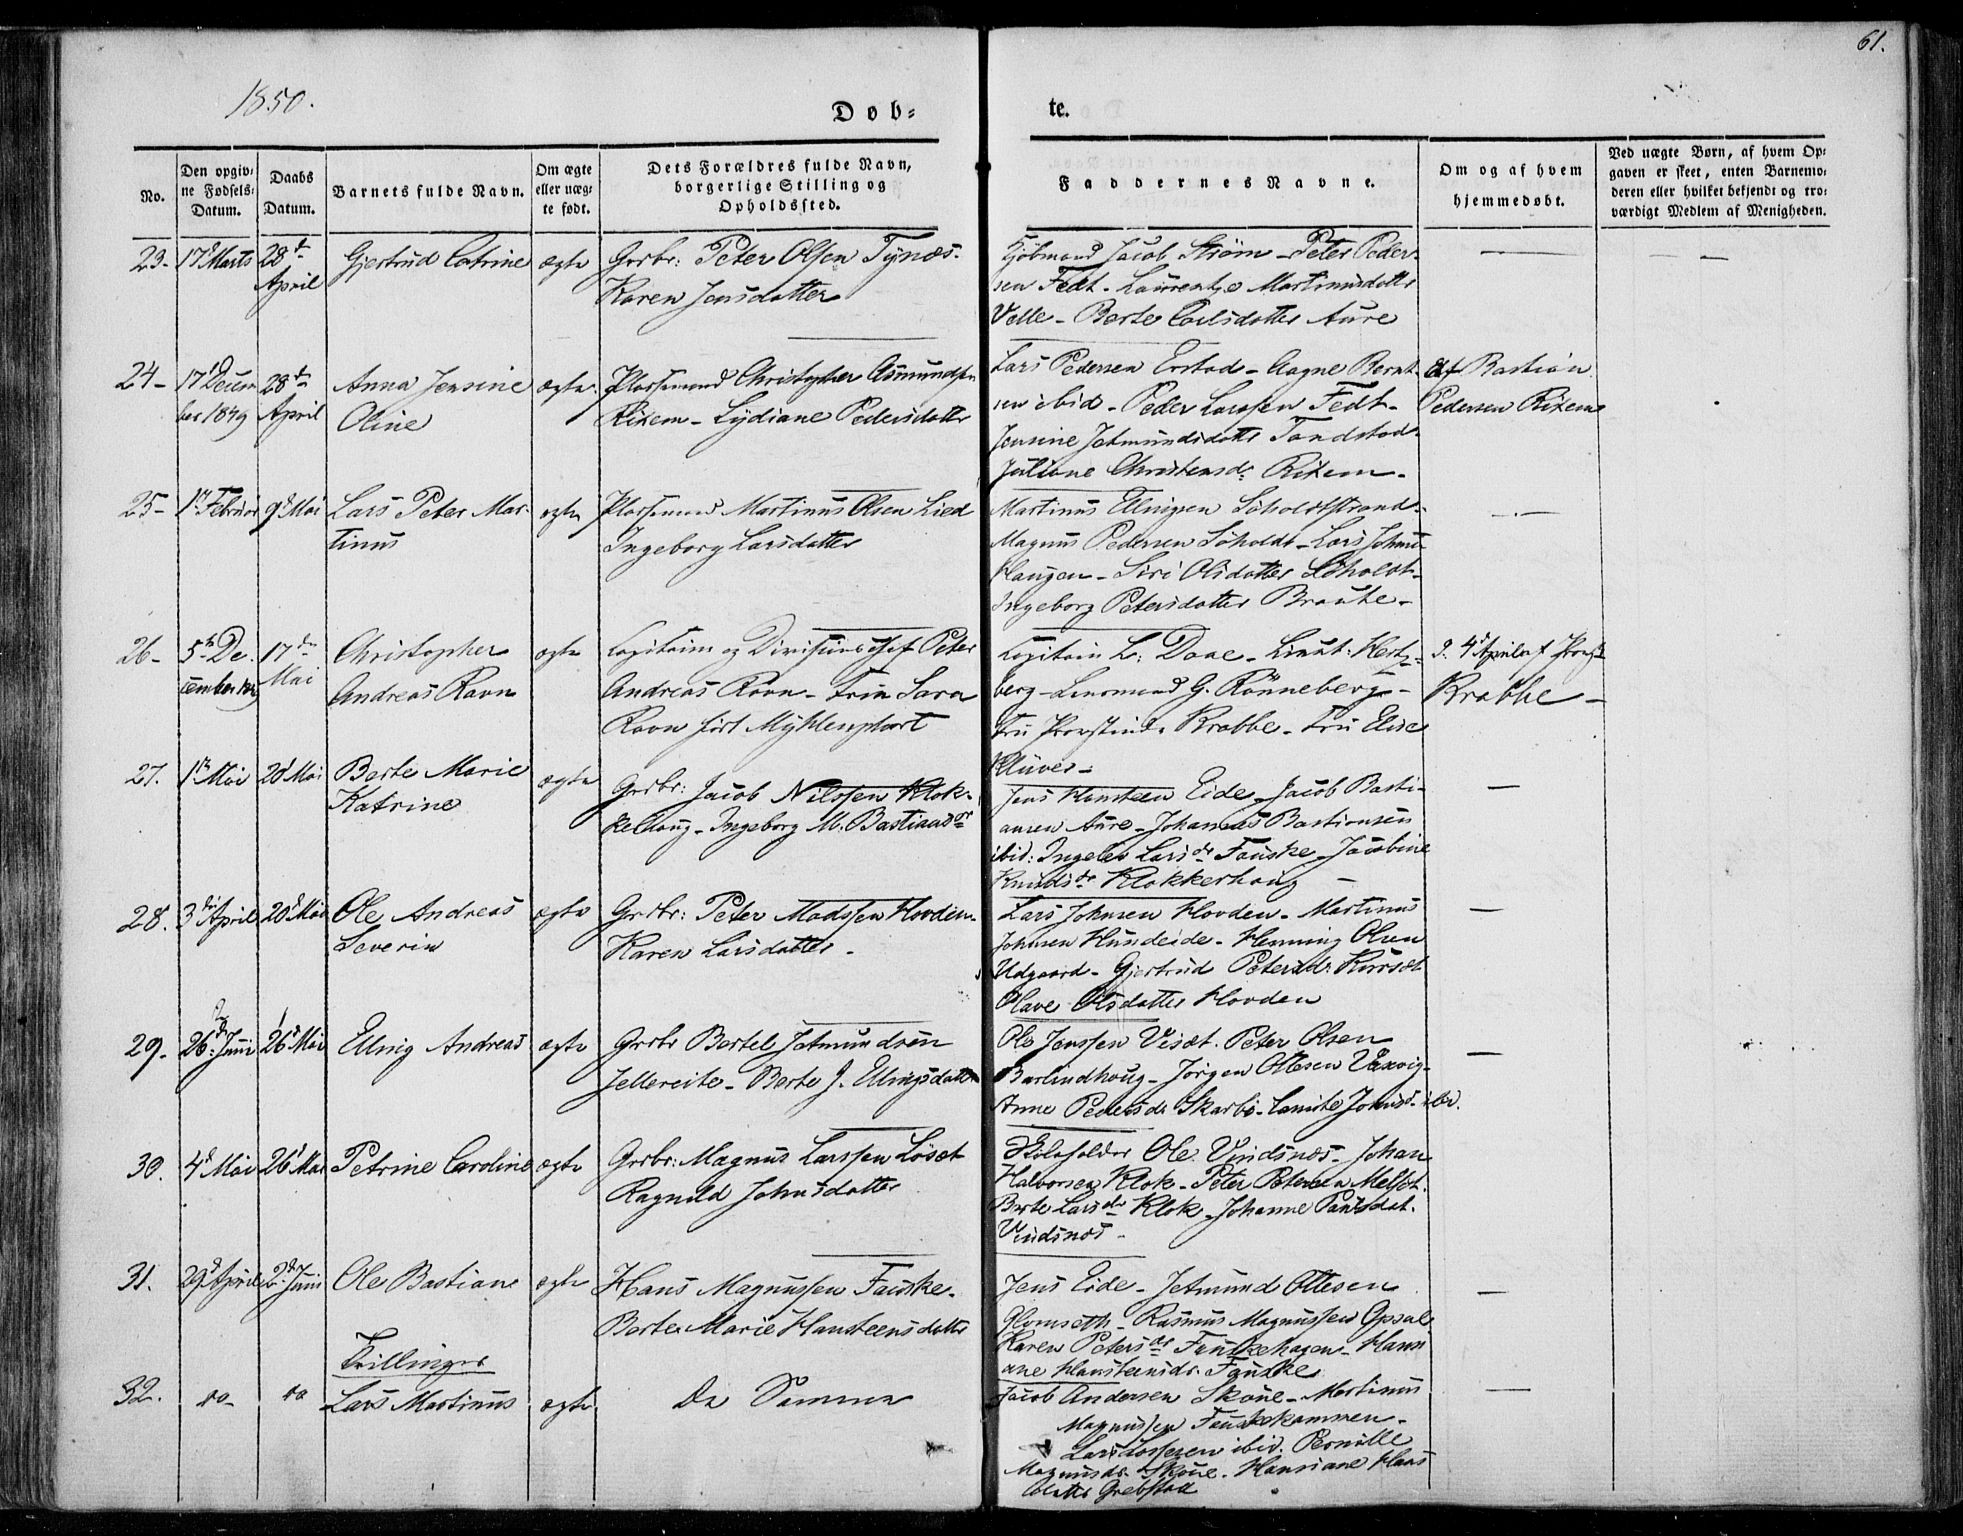 61.
1850.
Døb-
te.
No.
Den opgiv-
ne Fødsels-
Datum.
Daabs
Datum.
Barnets fulde Navn.
Om ægte
eller uæg-
te født.
Dets Forældres fulde Navn,
borgerlige Stilling og
Opholdssted.
Faddernes Navne.
Om og af hvem
hjemmedøbt.
Ved uægte Børn, af hvem Op-
gaven er skeet, enten Barnemo-
deren eller hvilket bekjendt og tro-
værdigt Medlem af Menigheden.
23- 17d Marts 28de April Gjertrud Catrine ægte Grbr: Peter Olsen Tynæs-
Karen Jensdatter
Kjøbmand Jacob Strøm - Peter Peder-
sen Fedt - Laurentze Martinusdatter
Velle - Berte Carlsdatter Aure
24- 17 Decem
ber 1849 28de
April Anna Jensine
Oline ægte Pladsmand Christopher Asmundsen
Rixem - Lydiane Pedersdatter
Lars Pedersen Erstad - Aagne Bernt-
sen ibid - Peder Larssen Fedt -
Jensine Jetmundsdatter Tandstad-
Juliane Christensdr Rixem -
Af Bastian
Pedersen Rixem
25- 1ste Februar 9d Mai Lars Peter Mar-
tinus ægte Pladsmand Martinus Olsen Lied
Ingeborg Larsdatter
Martinus Ellingsen Søholdtstrand-
Magnus Pedersen Søholdt - Lars Johns
Haugen - Siri Olsdatter Søholdt-
Ingeborg Petersdatter Braute -
26- 5te De-
cember 17de
Mai Christopher
Andreas Ravn ægte Capitain og Divisionschef Peter
Andreas Ravn - Fru Sara
Ravn født Myhlenphort
Capitain L: Daae - Lieut: Hertz-
berg - Lensmand G. Rønneberg -
Fru Provstinde Krabbe - Fru Elise
Klüver -
d. 4d April af Provst
Krabbe -
27. 1ste Mai 20d Mai Berte Marie
Katrine ægte Grbr: Jacob Nilssen Klok-
kehoug - Ingeborg M. Bastiansdr
Jens Hansteen Eide - Jacob Basti-
ansen Aure - Johannes Bastiansen
ibid: Ingelev Larsdr Fauske - Jacobine
Knudsdr Klokkerhoug -
28. 3die April 20d Mai Ole Andreas
Severin ægte Grbr: Peter Madssen Hovden-
Karen Larsdatter -
Lars Johnsen Hovden - Martinus
Johnsen Hundeide - Henning Olsen
Udgaard - Gjertrud Petersdr Kursæt
Olave Olsdatter Hovden
29- 26d Juni 26d Mai Elling Andreas ægte Grbr Bertel Jetmundsen
Jellereite - Berte J. Ellingsdatter
Ole Jenssen Visæt - Peter Olsen
Barlindhoug - Jørgen Ottesen Vaxvig-
Anne Pedersdr Skarbø - Johnsd. ibid.
30. 4d Mai 26d Mai Petrine Caroline ægte Grbr: Magnus Larssen Løset
Ragnild Johnsdatter
Skoleholder Ole Vindsnes - Johan
Halvorsen Klok - Peter Petersen Melset
Berte Larsdr Klok - Johanne Paulsdat.
Vindsnes -
31. 29d April 2d Juni Ole Bastian ægte Hans Magnussen Fauske-
Berte Marie Hansteensdatter
Jens Eide - Jetmund Ottesen
Glomseth - Rasmus Magnussen Opsal
Karen Petersdr Fauskehagen - Hans
ane Hansteensdr. Fauske
Tvillinger
32. do- do Lars Martinus ægte De Samme
Jacob Andersen Skoue - Martinus
Magnussen Fauskekammen-
Lars Larssen ibid. Pernille
Magnusdr. Skoue - Hansiane Hans
datter Grebstad